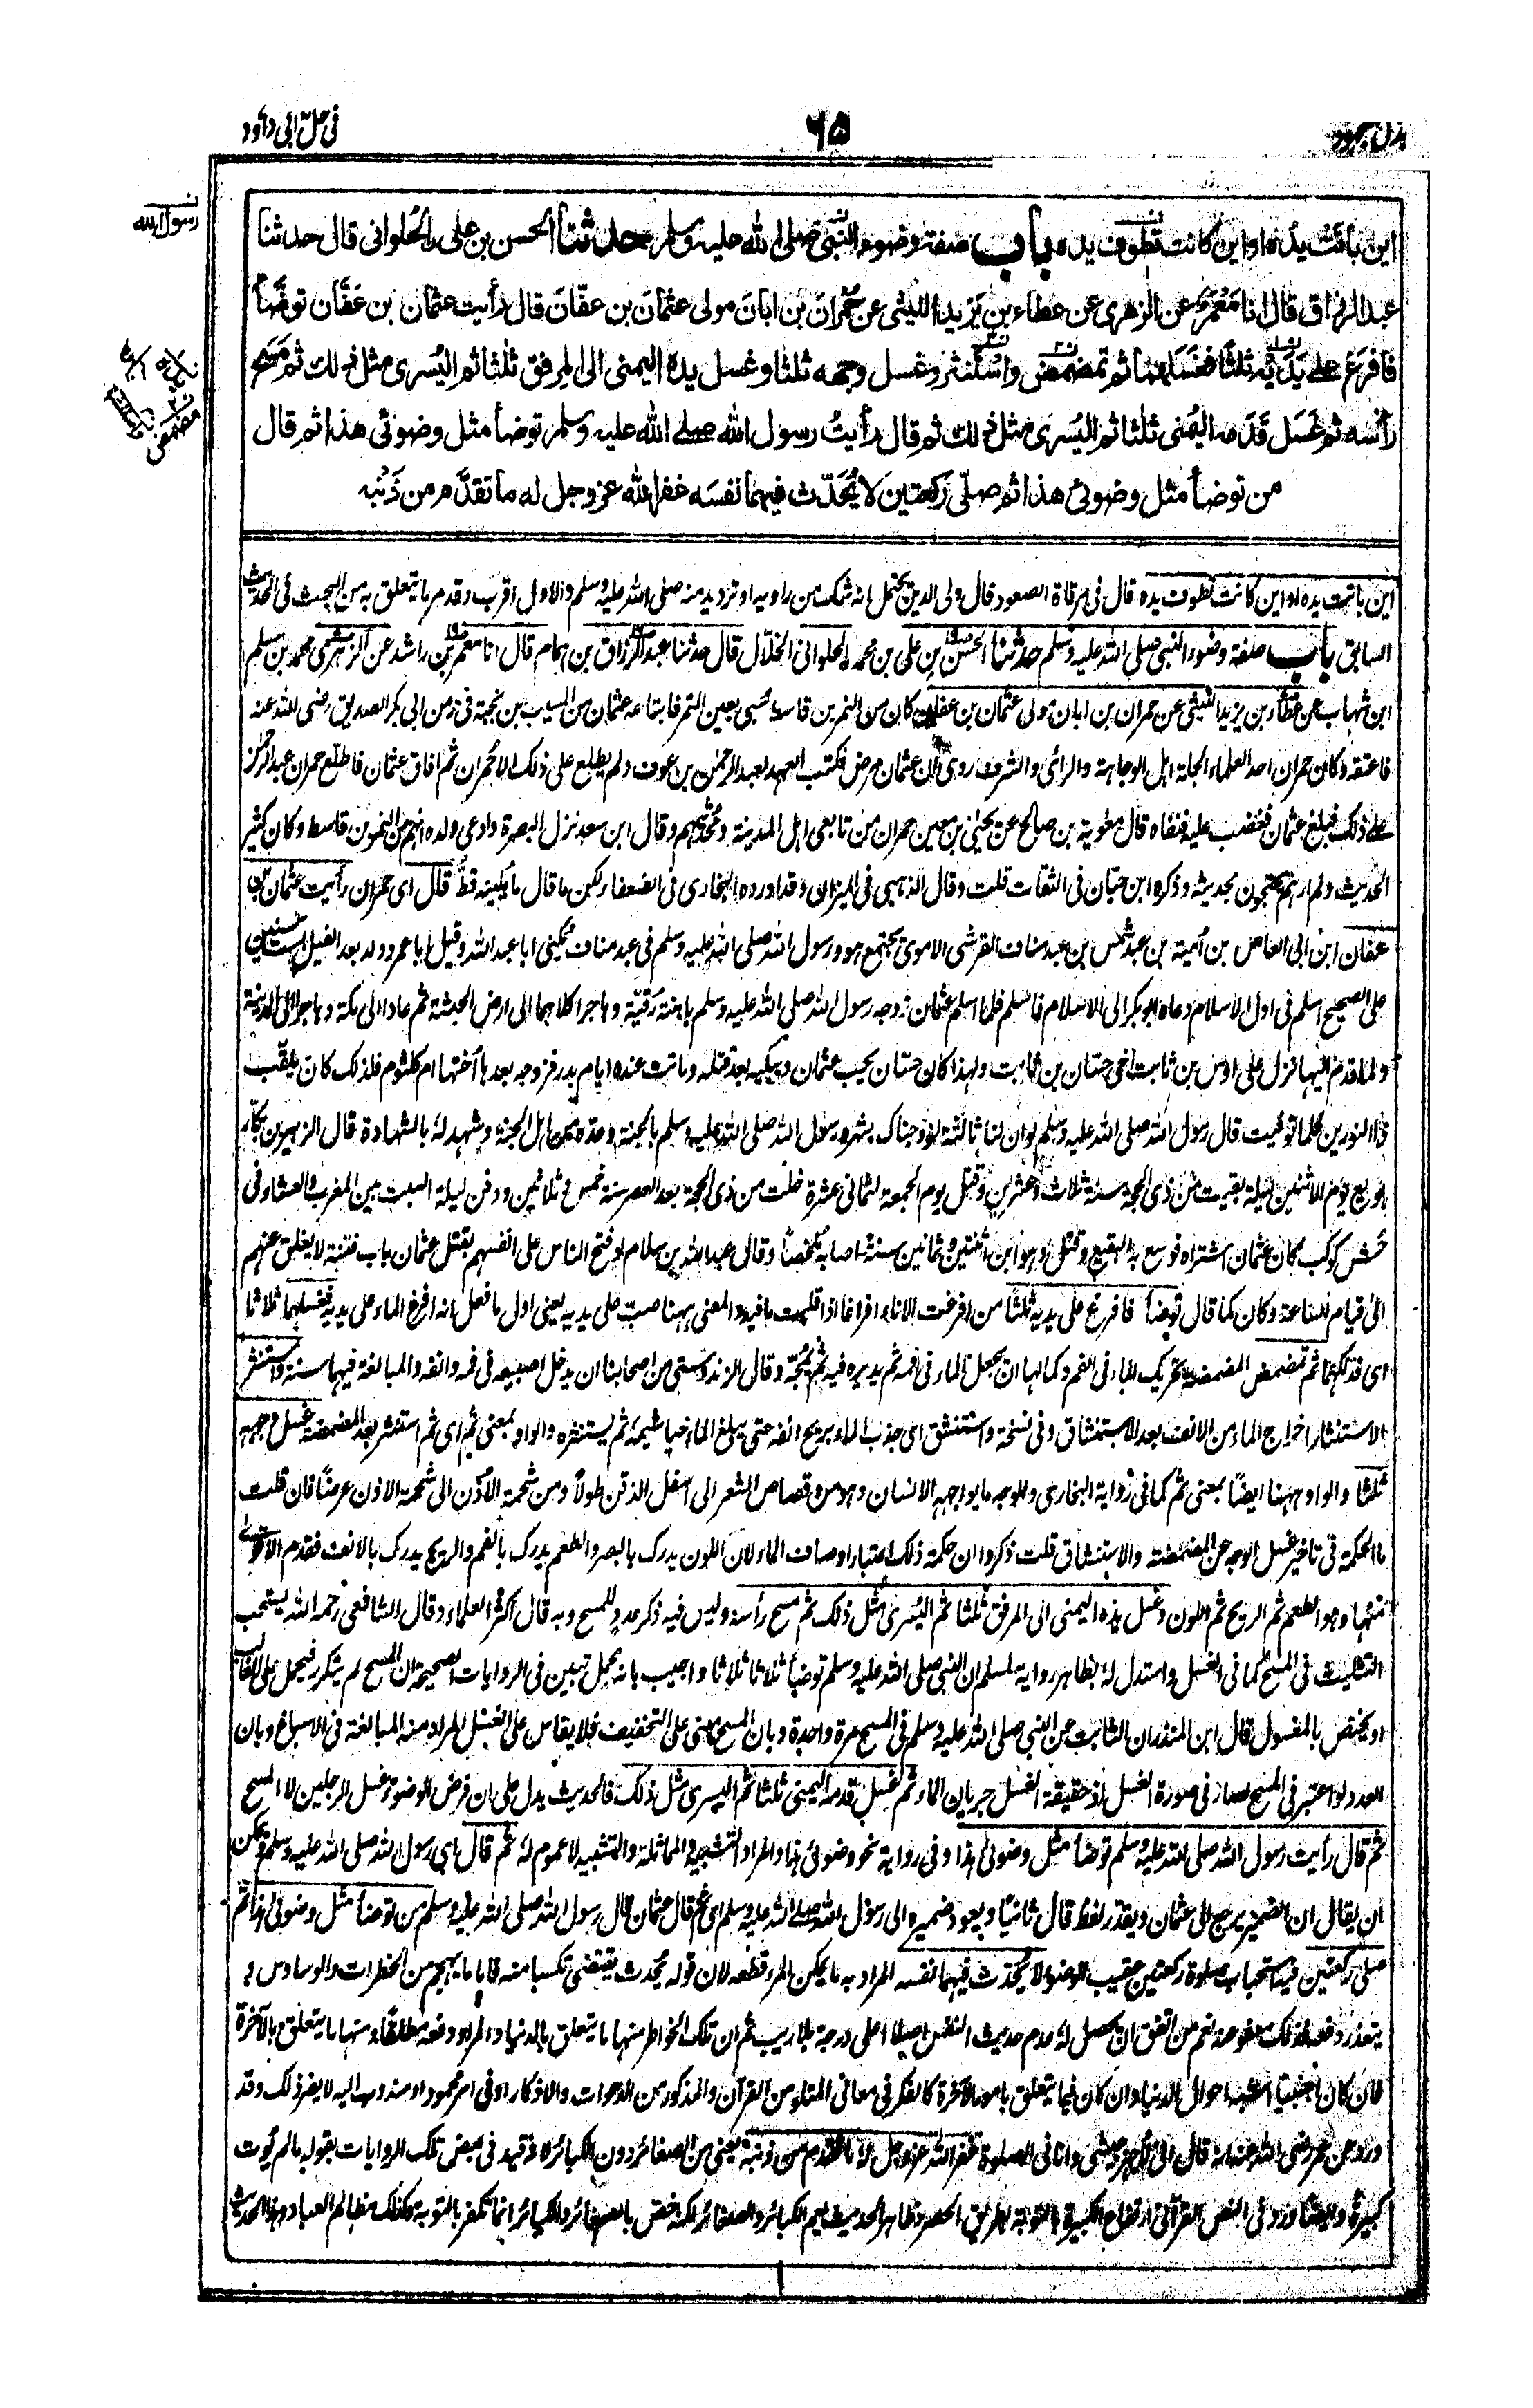 بذل المجهود
٦٥
فى حل ابى داؤد
اين باتت يده او اين كانت تطوف يده باب صفة وضوء النبى صلى الله عليه وسلم حدثنا الحسن بن على الحلوانى قال حدثنا
رسول الله
عبد الرزاق قال انا معمر عن الزهرى عن عطاء بن يزيد الليثى عن حُمران بن ابان مولى عثمان بن عفان قال رأيت عثمان بن عفان توضأ
فافرغ على يديه ثلثا فغسلهما ثم تمضمض واستنثر وغسل وجهه ثلثا وغسل يده اليمنى الى المرفق ثلثا ثم اليُسرى مثل ذلك ثم مسح
مضمض
رأسه ثم غسل قدمه اليمنى ثلثا ثم اليُسرى مثل ذلك ثم قال رأيتُ رسول الله صلے الله عليه وسلم توضأ مثل وضوئى هذا ثم قال
من توضأ مثل وضوئى هذا ثم صلّى ركعتين لا يُحدّث فيهما نفسَه غفر الله عز وجل له ما تقدّم من ذَنْبه
اين باتت يده او اين كانت تطوف يده قال فى مرقاة الصعود قال ولى الدين يحتمل انه شك من راويه او ترديد منه صلى الله عليه وسلم والاول اقرب وقد مر ما يتعلق به من البحث فى الحديث
السابق باب صفة وضوء النبى صلى الله عليه وسلم حدثنا الحسن بن على بن محمد الحلوانى الخلّال قال حدثنا عبد الرزاق بن همام قال انا معمر بن راشد عن الزهرى محمد بن مسلم
ابن شهاب عن عطاء بن يزيد الليثى عن حمران بن ابان مولى عثمان بن عفان كان من النمر بن قاسط سُبى بعين التمر فابتاعه عثمان من المسيب بن نجبة فى زمن ابى بكر الصديق رضى الله عنه
فاعتقه وكان حمران احد العلماء الجلة اهل الوجاهة والرائى والشرف روى ان عثمان مرض فكتب العهد لعبد الرحمٰن بن عوف ولم يطلع على ذلك الا حُمران ثم افاق عثمان فاطلع حمران عبد الرحمٰن
علے ذلك فبلغ عثمان فغضب عليه فنفاه قال معٰوية بن صالح عن يحيٰى بن معين حمران من تابعى اهل المدينة ومُحدّثيهم وقال ابن سعد نزل البصرة وادعى ولده انهم من النمر بن قاسط وكان كثير
الحديث ولم ارهم يحتجون بحديثه وذكره ابن حبّان فى الثقات قلت وقال الذهبى فى الميزان وقد اورده البخارى فى الضعفاء لكن ما قال ما بينه قط قال اى حمران رأيت عثمان بن
عفان ابن ابى العاص بن اُمية بن عبد شمس بن عبد مناف القرشى الاموى يجتمع هو ورسول الله صلى الله عليه وسلم فى عبد مناف يُكنى ابا عبد الله وقيل ابا عمر وولد بعد الفيل بست سنين
على الصحيح اسلم فى اول الاسلام دعاه ابو بكر الى الاسلام فاسلم فلما اسلم عثمان زوجه رسول الله صلى الله عليه وسلم بابنته رُقيّة وهاجرا كلاهما الى ارض الحبشة ثم عاد الى مكة وهاجر الى المدينة
ولما قدم اليها نزل على اوس بن ثابت اخى حسّان بن ثابت ولهذا كان حسّان يحب عثمان ويبكيه بعد قتله وماتت عنده ايام بدر فزوجه بعدها اُختها ام كلثوم فلذلك كان يلقّب
ذا النورين فلما توفيت قال رسول الله صلى الله عليه وسلم لو ان لنا ثالثة لزوجناك بشره رسول الله صلى الله عليه وسلم بالجنة وعده من اهل الجنة وشهد له بالشهادة قال الزبير بن بكّار
بويع يوم الاثنين لليلة بقيت من ذى الحجة سنة ثلاث وعشرين وقتل يوم الجمعة لثمانى عشرة خلت من ذى الحجة بعد العصر سنة خمس وثلاثين ودفن ليلة السبت بين المغرب والعشاء فى
حُش كوكب كان عثمان اشتراه فوسع به البقيع وقتل وهو ابن اثنتين وثمانين سنة اصابه ملخصاً وقال عبد الله بن سلام لو فتح الناس على انفسهم بقتل عثمان باب فتنة لا يغلق عنهم
الى قيام الساعة وكان كما قال توضأ فافرغ على يديه ثلثاً من افرغت الاناء افراغا اذا قلبت ما فيه والمعنى ههنا صبّ على يديه يعنى اول ما فعل انه افرغ الماء على يديه فغسلهما ثلاثا
اى قدلكهما ثم تمضمض المضمضة تحريك الماء فى الفم وكمالها ان يجعل الماء فى فمه ثم يديره فيه ثم يمُجّه وقال الزندوستى من اصحابنا ان يدخل اصبعه فى فمه وانفه والمبالغة فيهما سنة واستنثر
الاستنثار اخراج الماء من الانف بعد الاستنشاق وفى نسخة واستنشق اى جذب الماء بريح انفه حتى يبلغ الماء خياشيمه ثم يستنثره والواو بمعنى ثم اى ثم استنثر بعد المضمضة غسل وجهه
ثلثا والواو ههنا ايضاً بمعنى ثم كما فى رواية البخارى والوجه ما يواجهه الانسان وهو من قصاص الشعر الى اسفل الذقن طولا ومن شحمة الاُذن الى شحمة الاذن عرضاً فان قلت
ما الحكمة فى تاخير غسل الوجه عن المضمضة والاستنشاق قلت ذكروا ان حكمة ذلك اعتبار اوصاف الماء لان اللون يدرك بالبصر والطعم يدرك بالفم والريح يدرك بالانف فقدم الاقوى
منها وهو الطعم ثم الريح ثم اللون وغسل يده اليمنى الى المرفق ثلثا ثم اليُسرى مثل ذلك ثم مسح رأسه وليس فيه ذكر عدد للمسح وبه قال اكثر العلماء وقال الشافعى رحمه الله يستحب
التثليث فى المسح كما فى الغسل واستدل له بظاهر رواية لمسلم ان النبى صلى الله عليه وسلم توضأ ثلاثا ثلاثا واجيب بانه مجمل تبين فى الروايات الصحيحة ان المسح لم يتكرر فيحمل على الغالب
او يختص بالمغسول قال ابن المنذر ان الثابت عن النبى صلى الله عليه وسلم فى المسح مرة واحدة وبان المسح مبنى على التخفيف فلا يقاس على الغسل المراد منه المبالغة فى الاسباغ وبان
العدد لو اعتبر فى المسح لصار فى صورة الغسل اذ حقيقة الغسل جريان الماء ثم غسل قدمه اليمنى ثلثا ثم اليسرى مثل ذلك فالحديث يدل على ان فرض الوضوء غسل الرجلين لا المسح
ثم قال رأيت رسول الله صلى الله عليه وسلم توضأ مثل وضوئى هذا وفى رواية نحو وضوئى هذا والمراد التشبيه والمماثلة والتشبيه لا عموم له ثم قال اى رسول الله صلى الله عليه وسلم ويمكن
ان يقال ان الضمير يرجع الى عثمان ويقدر لفظ قال ثانيا ويعود ضميره الى رسول الله صلے الله عليه وسلم اى ثم قال عثمان قال رسول الله صلى الله عليه وسلم من توضأ مثل وضوئى هذا ثم
صلى ركعتين فيه استحباب صلوة ركعتين عقيب الوضوء لا يُحدّث فيهما نفسه المراد به ما يمكن المرء قطعه لان قوله يُحدث يقتضى تكسبا منه فاما ما يهجم من الخطرات والوساوس و
يتعذر دفعه فذلك معفو عنه نعم من اتفق ان يحصل له عدم حديث النفس اصلا اعلى درجة بلا ريب ثم ان تلك الخواطر منها ما يتعلق بالدنيا والمراد دفعه مطلقا ومنها ما يتعلق بالآخرة
فان كان اجنبيا اشبه احوال الدنيا وان كان فيما يتعلق بامور الآخرة كالفكر فى معانى المتلو من القرآن والمذكور من الدعوات والاذكار او فى امر محمود او مندوب اليه لا يضر ذلك وقد
ورد عن عمر رضى الله عنه انه قال انى لاجهز جيشى وانا فى الصلوة غفر الله عز وجل له ما تقدم من ذنبه يعنى من الصغائر دون الكبائر وقيد فى بعض تلك الروايات بقوله ما لم يُوت
كبيرة وايضا ورد فى النص القرآنى ارتفاع الكبيرة بالتوبة بطريق الحصر وظاهر الحديث يعم الكبائر والصغائر لكنه خص بالصغائر والكبائر انما تكفر بالتوبة وكذلك مظالم العباد وهذا الحديث